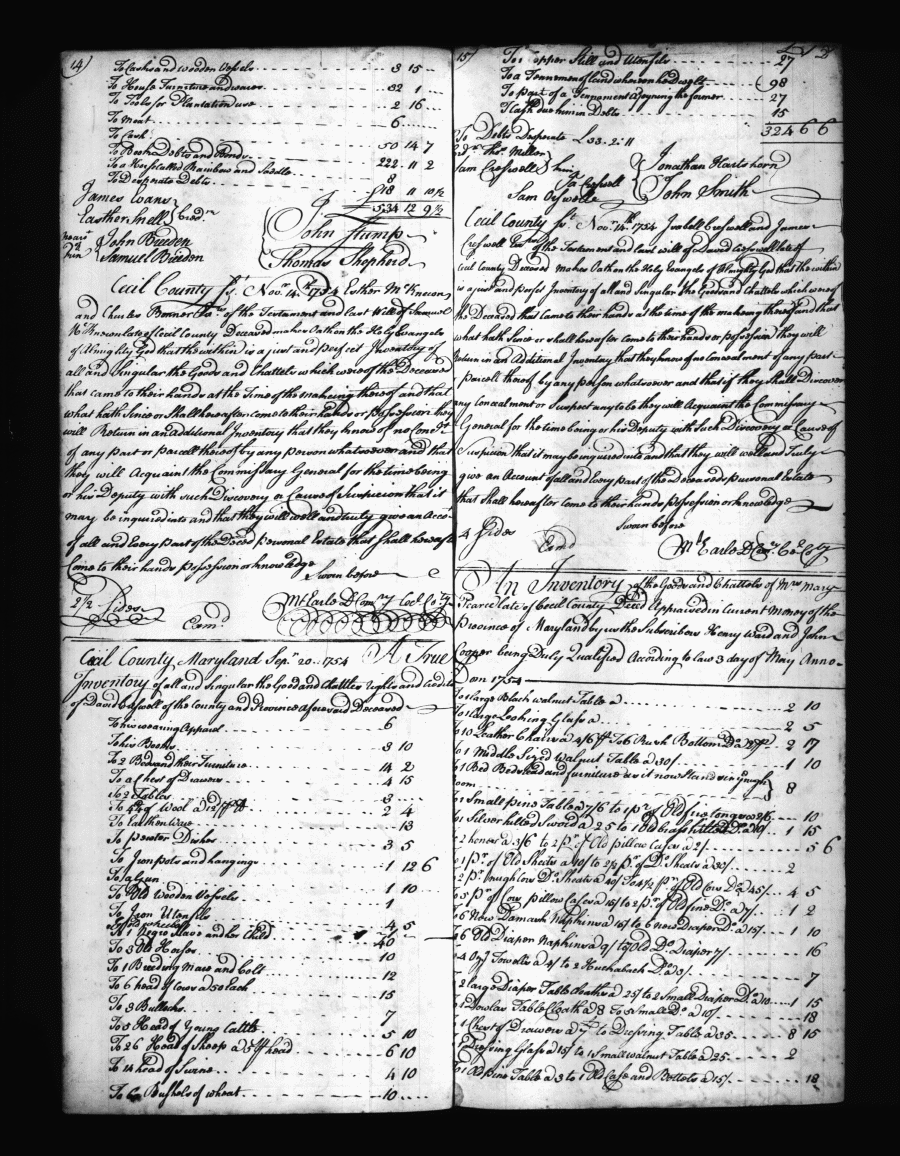 14)
To Casks and Wooden Vessels 3 15
To House Furniture and wear 32 1
To Tools for Plantation use 2 16
To meat 6
To Cash
To Book Debts and Bonds 50 14 7
To a Horse called Rainbow and Saddle 222 11 2
To Desperate Debts 8
118 11 10½
£534 12 9½
James Evans
Easther Snell } Cred.rs
John Beeden
Samuel Beeden
John Stump
Thomas Shepherd
Cecil County ss. Nov.r 14.th 1754 Esther McKneown
and Charles Bonner Ex.rs of the Testament and last Will of Samuel
McKneown late of Cecil County Deceased makes Oath on the Holy Evangels
of Almighty God that the within is a just and perfect Inventory of
all and Singular the Goods and Chattels which were of the Deceased
that came to their hands at the Time of the makeing thereof and that
what hath Since or Shall hereafter come to their hands or possession they
will Return in an Additional Inventory that they know of no Conc.t
of any part or parcell thereof by any person whatsoever and that
they will Acquaint the Commissary General for the time being
or his Deputy with such Discovery or Cause of Suspicion that it
may be inquired into and that they will well and truly give an Acco.t
of all and Every part of the Deced personal Estate that Shall hereaft
Come to their hands possession or knowledge
Sworn before
2½ Sides Exm.d M Earle D Com.ry Cecl Co.ty
Cecil County Maryland Sep.r 20.. 1754 A True
Inventory of all and Singular the Good and Chattles rights and Credits
of David Creswell of the County and Province aforesaid Deceased
To his wearing Apparel 6
To his Books 3 10
To 2 Beds and their Furniture 14 2
To a Chest of Drawers 4 15
To 2 Tables 3
To of Wool a 2 4
To Earthen Ware 13
To pewter Dishes 3 5
To Iron pots and hangings 1 12 6
To a Gun
To Old Wooden Vessels 1 10
To Iron Utensils 1
4 5
To 1 Negro Slave and her Child 40
To 3 Old Horses 10
To 1 Breeding Mare and Colt 12
To 6 head of Cows a 50 Each 15
To 3 Bullocks 7
To 5 Head of Young Cattle 5 10
To 26 Head of Sheep a 5/ head 6 10
To 14 head of Swine 4 10
To Bushels of wheat 10
15)
To 1 Copper Still and Utensils 27
To a Tennement of land whereon he Dwelt 98
To part of a Tennament adjoyning the former 27
To Cash due him in Debts 15
3246 6
To Debts Desperate £33..2..11
Tho.s Miller
Creswell } kin
Ja Creswell
Sam Creswell
Jonathan Hartshorn
John Smith
Cecil County ss. Nov.r 14.th 1754 Creswell and James
Creswell Ex.rs of the Testament and last will of David Creswell late of
Cecil County Deceased makes Oath on the Holy Evangels of Almighty God that the within
is a just and perfect Inventory of all and Singular the Goods and Chattels which were of
the Deceased that came to their hands at the time of the makeing thereof and that
what hath Since or shall hereafter come to their hands or possession they will
Return in an Additional Inventory that they know of no Concealment of any part
parcell thereof by any person whatsoever and that if they Shall Discover
any Concealment or Suspect any to be they will Acquaint the Commissary
General for the time being or his Deputy with Such Discovery or Cause of
Suspicion that it may be inquired into and that they will well and Truly
give an Account of all and Every part of the Deceaseds personal Estate
that Shall hereafter come to their hands possession or knowledge
Sworn before
4 Sides Exm.d M Earle D Com.ry Ce.l Co.ty
An Inventory of the Goods and Chattels of M.rs Mary
Pearce late of Cecil County Deced Appraised in Current money of the
Province of Maryland by us the Subscribers Henry Ward and John
Cooper being Duly Qualified According to law 3 day of May Anno
Dom 1754
To 1 large Black walnut Table a 2 10
To 1 large Looking Glass a 2 5
To 10 Leather Chairs a 4/6 To 6 Rush Bottom D.o 2 17
To 1 Middle Sized Walnut Table a 30/ 1 10
To 1 Bed Bedstead and furniture as it now Stands in
Room 8
1 Small pine Table a 7/6 to 1 p.r of Old 10
1 Silver hilted Sword a 25 to 1 Old brass hilted D.o a 10/ 1 15
2 a 3/6 to 2 p.r of Old pillow Cases a 2/ 5 6
1 p.r of Old Sheets a 10/ to 2½ p.r of D.o Sheets a 30/ 2
2 p.r D.o Sheets a 40/ To 4½ p.r of Old Cors D.o a 45/ 4 5
3 p.r of Cors pillow Cases a 15/ to 2 p.r of Old fine D.o a 7/ 1 2
6 New Damask Napkins a 15/ to 6 new Diaper D.o a 15/ 1 10
6 Old Diaper Napkins a 9/ to Old D.o Diaper 7/ 16
4 Ozn Towells a 4/ to 2 Huckaback D.o a 3/ 7
2 large Diaper Table Cloaths a 25/ to 2 Small Diaper D.o a 10 1 15
1 Dowlas Table Cloath a 8 to 3 small D.o a 10/ 18
1 Chest of Drawers a 7 to Dressing Table a 35 8 15
Dressing Glass a 15/ to 1 Small walnut Table a 25 2
1 Old pine Table a 3 to 1 Old Case and Bottels a 15/ 18